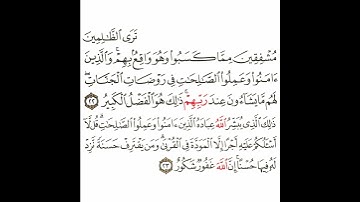 تَرَى ٱلظَّـٰلِمِينَ
مُشْفِقِينَ مِمَّا كَسَبُوا۟ وَهُوَ وَاقِعٌۢ بِهِمْ ۗ وَٱلَّذِينَ
ءَامَنُوا۟ وَعَمِلُوا۟ ٱلصَّـٰلِحَـٰتِ فِى رَوْضَاتِ ٱلْجَنَّاتِ ۖ
لَهُم مَّا يَشَآءُونَ عِندَ رَبِّهِمْ ۚ ذَٰلِكَ هُوَ ٱلْفَضْلُ ٱلْكَبِيرُ ٢٢
ذَٰلِكَ ٱلَّذِى يُبَشِّرُ ٱللَّهُ عِبَادَهُ ٱلَّذِينَ ءَامَنُوا۟ وَعَمِلُوا۟ ٱلصَّـٰلِحَـٰتِ ۗ قُل لَّآ
أَسْـَٔلُكُمْ عَلَيْهِ أَجْرًا إِلَّا ٱلْمَوَدَّةَ فِى ٱلْقُرْبَىٰ ۗ وَمَن يَقْتَرِفْ حَسَنَةً نَّزِدْ
لَهُۥ فِيهَا حُسْنًا ۚ إِنَّ ٱللَّهَ غَفُورٌ شَكُورٌ ٢٣